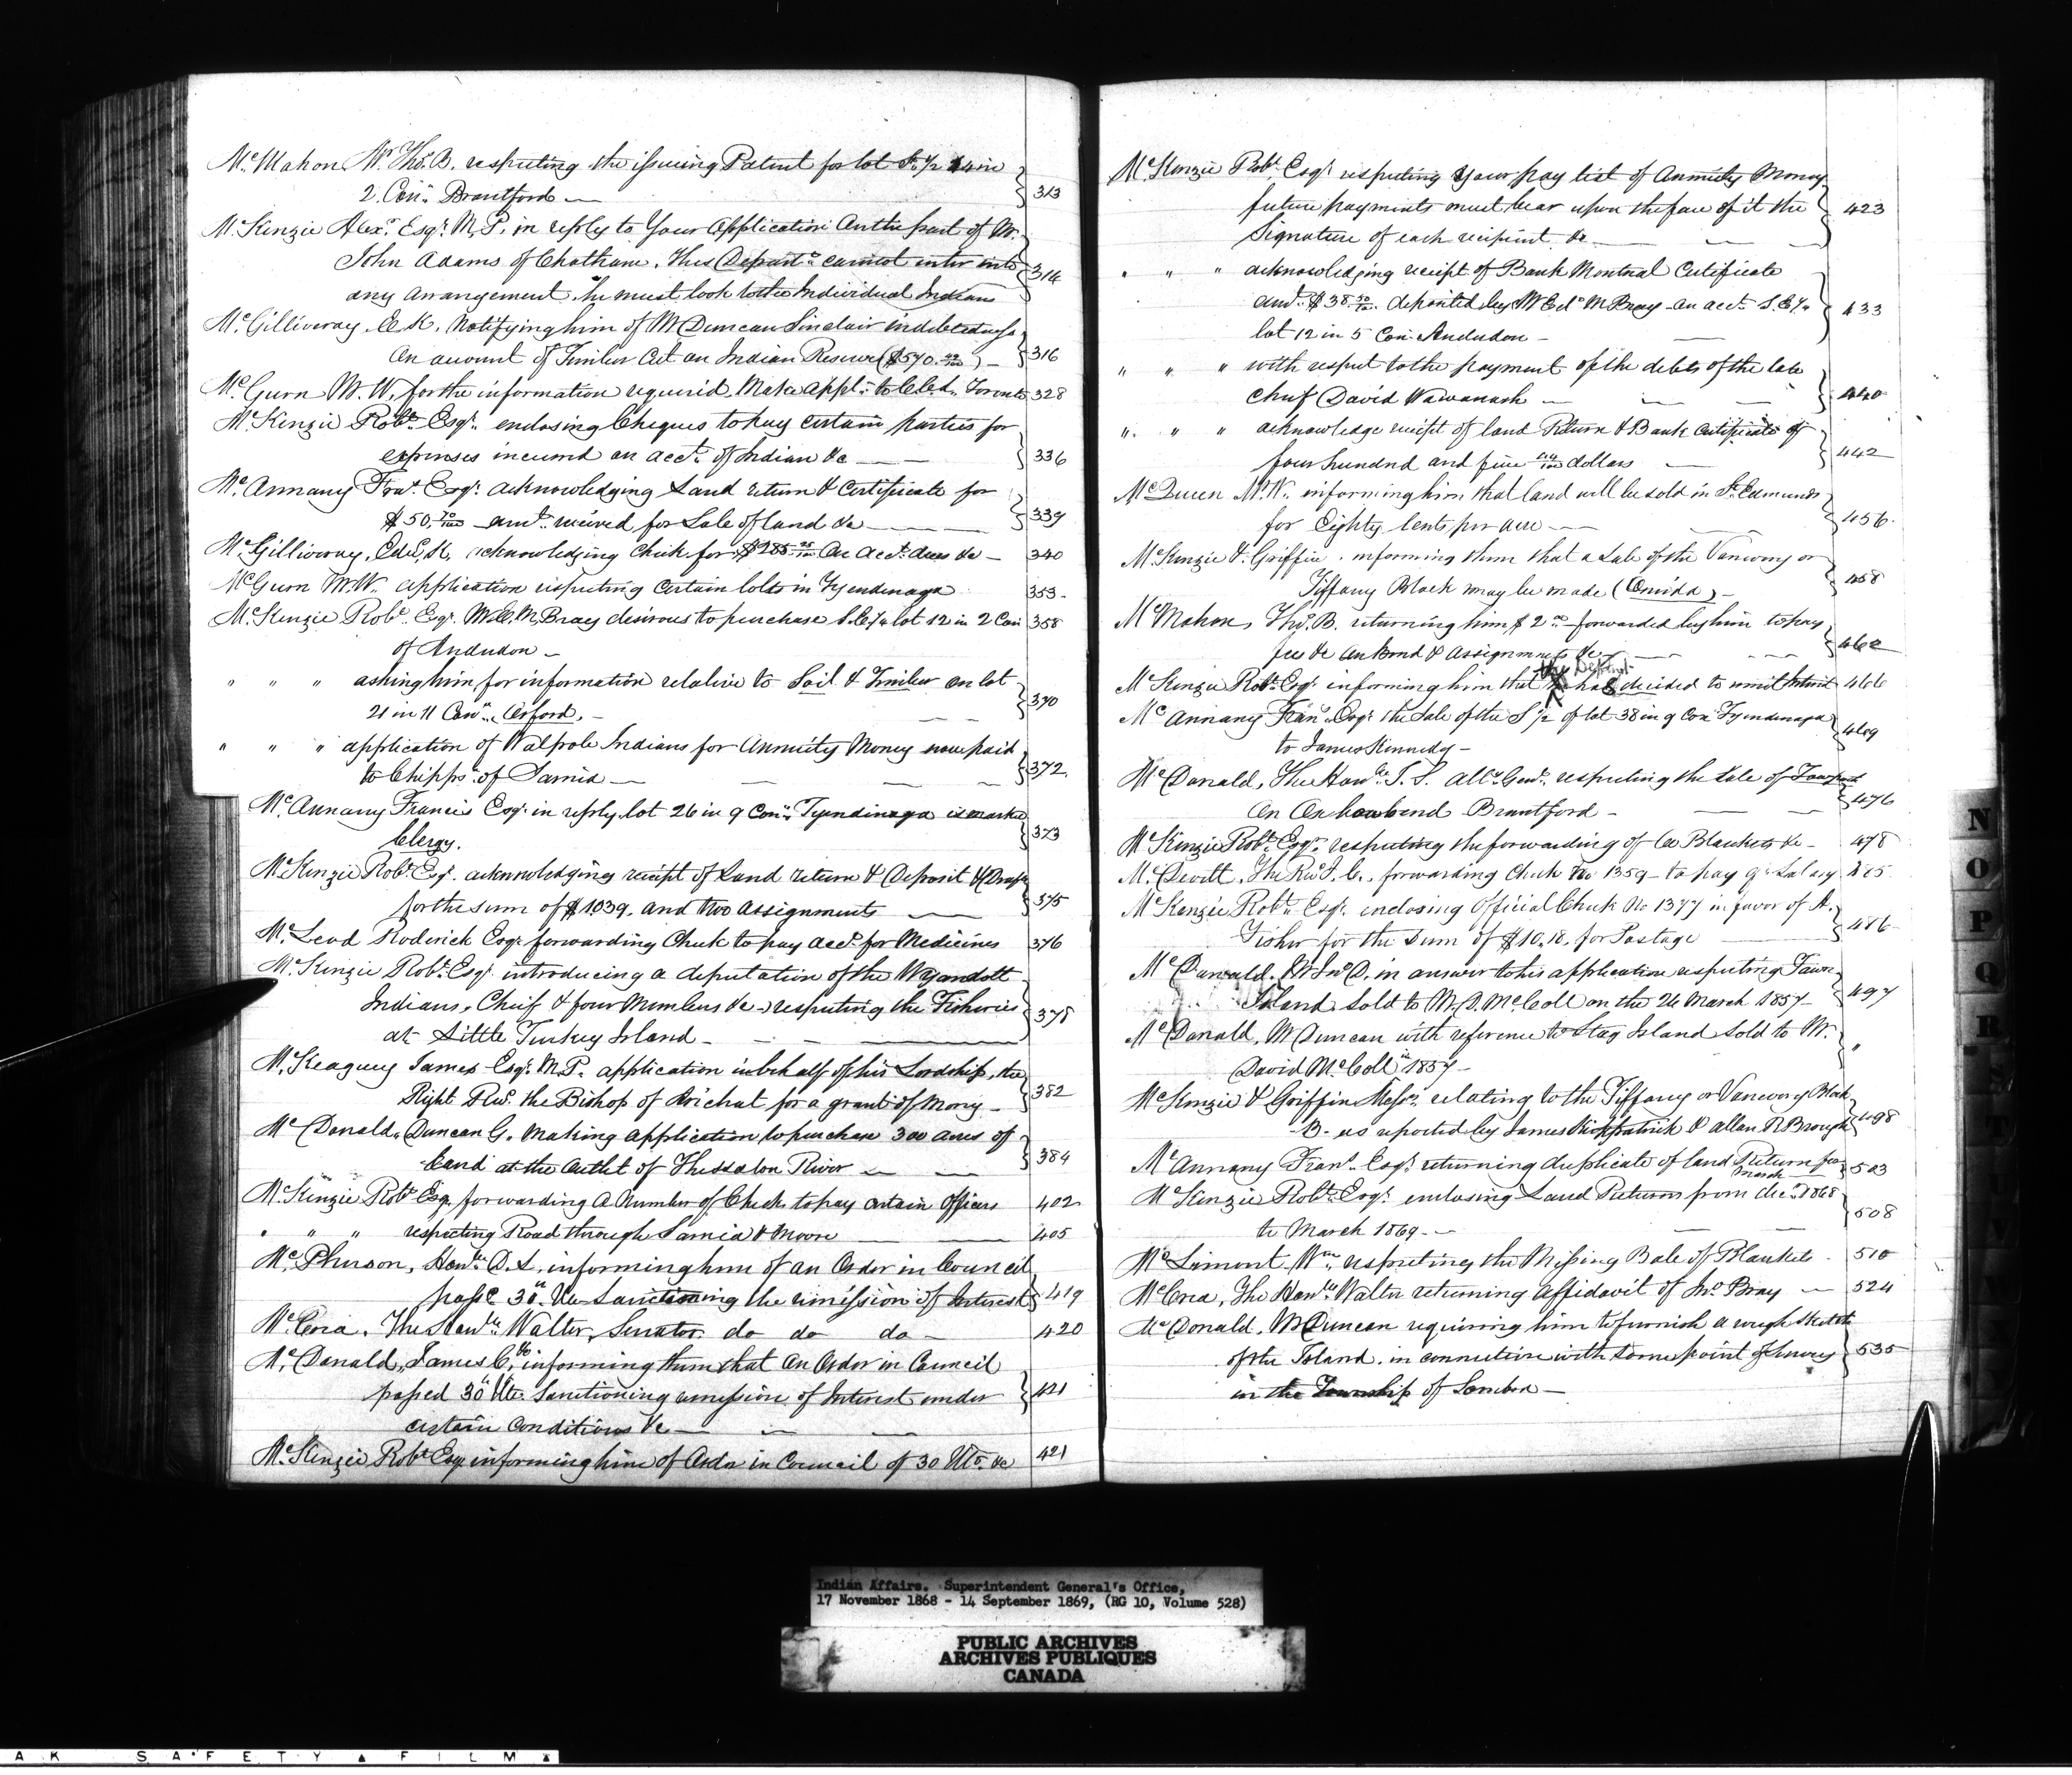 McMahon Mr Thos. B. respecting the issuing Patent for lot So. 1/2 4 in
2. Con. Brantford — 313
McKenzie Alexr. Esqr. M.P. in reply to Your Application on the part of Mr.
John Adams of Chatham. This Departt. cannot enter into
any arrangement, he must look to the Individual Indians 314
McGillivray E.K. Notifying him of Mr Duncan Sinclair indebtedness
on account of Timber Cut on Indian Reserve ($570. ) — 316
McGurn M.W. for the information required. Make appln. to C.C.L. Toronto 328
McKenzie Robt. Esqr. enclosing Cheques to pay certain parties for
expenses incurred on acct. of Indian &c — 336
McAnnany Frans. Esqr. acknowledging Land return & Certificate for
$50.70/100 amt. received for Sale of land &c — 339
McGillivray, Edd. K. acknowledging Check for $285.25/100 on acct. dues &c — 340
McGurn M.W. application respecting certain lots in Tyendinaga 353
McKenzie Robt. Esqr. Mr E. McBray desirous to purchase S.E. 1/4 lot 12 in 2 Con 358
of Anderdon —
" " " asking him for information relative to Soil & Timber on lot
21 in 11 Con. Orford. — 370
" " " application of Walpole Indians for Annuity Money now paid
to Chipps. of Sarnia — 372
McAnnany Francis Esqr. in reply lot 26 in 9 Con. Tyendinaga is marked
Clergy. 373
McKenzie Robt. Esqr. acknowledging receipt of Land return & Deposit & Draft
for the sum of $1039. and two assignments — 375
McLeod Roderick Esqr. forwarding Check to pay acct. for Medicines 376
McKenzie Robt. Esqr. introducing a deputation of the Wyandott
Indians, Chief & four Members &c — respecting the Fisheries
at Little Turkey Island — 378
McKeaguey James Esqr. M.P. application in behalf of his Lordship, the
Right Revd. the Bishop of Arichat for a grant of money — 382
McDonald, Duncan G. Making application to purchase 300 acres of
Land at the Outlet of Thessalon River — 384
McKenzie Robt. Esqr. forwarding a Number of Checks to pay certain Officers 402
" " " respecting Road through Sarnia & Moore — 405
McPherson, Honble. D.L. informing him of an Order in Council
passed 30th Ulto Sanctioning the remission of Interest 419
McCrea. The Honble. Walter, Senator do do do — 420
McDonald, James C., informing them that an Order in Council
passed 30th Ulto. Sanctioning remission of Interest under
certain conditions &c — 421
McKenzie Robt. Esqr. informing him of Order in Council of 30 Ulto. &c 421
McKenzie Robt. Esqr. respecting Your pay list of Annuity Money
future payments must bear upon the face of it the
Signature of each recipient &c — 423
" " " acknowledging receipt of Bank Montreal Certificate
amt. $38.50/100 deposited by Mr Ed. McBray on acct. S.E. 1/4
lot 12 in 5 Con. Anderdon — 433
" " " with respect to the payment of the debts of the late
Chief David Wawanash — 440
" " " acknowledge receipt of land Return & Bank Certificate of
four hundred and five dollars — 442
McQueen M.W. informing him that land will be sold in St. Edmunds
for Eighty cents per acre — 456
McKenzie & Griffin. informing them that a Sale of the Vanevery or
Tiffany Block may be made (Oneida) — 458
McMahon, Thos. B. returning him $2.00 forwarded by him to pay
fee &c on Bond & Assignment &c — 462
McKenzie Robt. Esqr. informing him that the Departt. has decided to remit Interest 466
McAnnany Frans. Esqr. the Sale of the S 1/2 of lot 38 in 9 Con. Tyendinaga
to James Kennedy — 469
McDonald, The Honble. J.S. Atty. Genl. respecting the Sale of
On Oxbow bend Brantford — 476
McKenzie Robt. Esqr. respecting the forwarding of Blankets &c — 478
McDevitt, The Revd. J.C. forwarding Check No 1359 — to pay qr. Salary 485
McKenzie Robt. Esqr. enclosing Official Check No 1377 in favor of A.
Fisher for the Sum of $10.18. for Postage — 486
McDonald. Mr Jno. D. in answer to his application respecting Fawn
Island Sold to Mr. D. McColl on the 26 March 1857 — 497
McDonald, Mr Duncan with reference to Stag Island Sold to Mr.
David McColl in 1857 — "
McKenzie & Griffin Messrs. relating to the Tiffany or Vanevery Block
— as reported by James Kirkpatrick & Allan N Brough 498
McAnnany Frans. Esqr. returning duplicate of land Return for March 503
McKenzie Robt. Esqr. enclosing Land Returns from Decr. 1868
to March 1869 — 508
McLimont Wm. respecting the Missing Bale of Blankets 510
McCrea, The Honble. Walter returning Affidavit of Jno. Bray — 524
McDonald, Mr Duncan requiring him to furnish a rough Sketch
of the Island, in connection with some point of Survey
in the Township of Sombra — 535
N
O
P
Q
R
S
T
V
Indian Affairs. Superintendent General's Office,
17 November 1868 - 14 September 1869, (RG 10, Volume 528)
PUBLIC ARCHIVES
ARCHIVES PUBLIQUES
CANADA
A K SAFETY ▲ FILM ▲